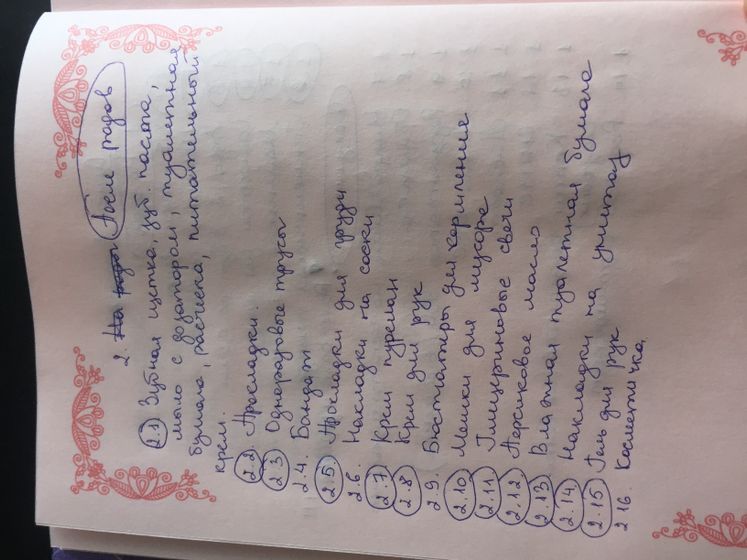 2. На роды После родов
2.1 Зубная щетка, зуб. паста,
мыло с дозатором, туалетная
бумага, расческа, питательный
крем.
2.2. Прокладки.
2.3 Одноразовые трусы
2.4. Бандаж
2.5. Прокладки для груди
2.6. Накладки на соски
2.7 Крем пурелан
2.8. Крем для рук
2.9. Бюстгалтеры для кормления
2.10 Мешки для мусора
2.11. Глицериновые свечи
2.12. Персиковое масло
2.13 Влажная туалетная бумага
2.14 Накладки на унитаз
2.15 Гель для рук
2.16. Косметичка.